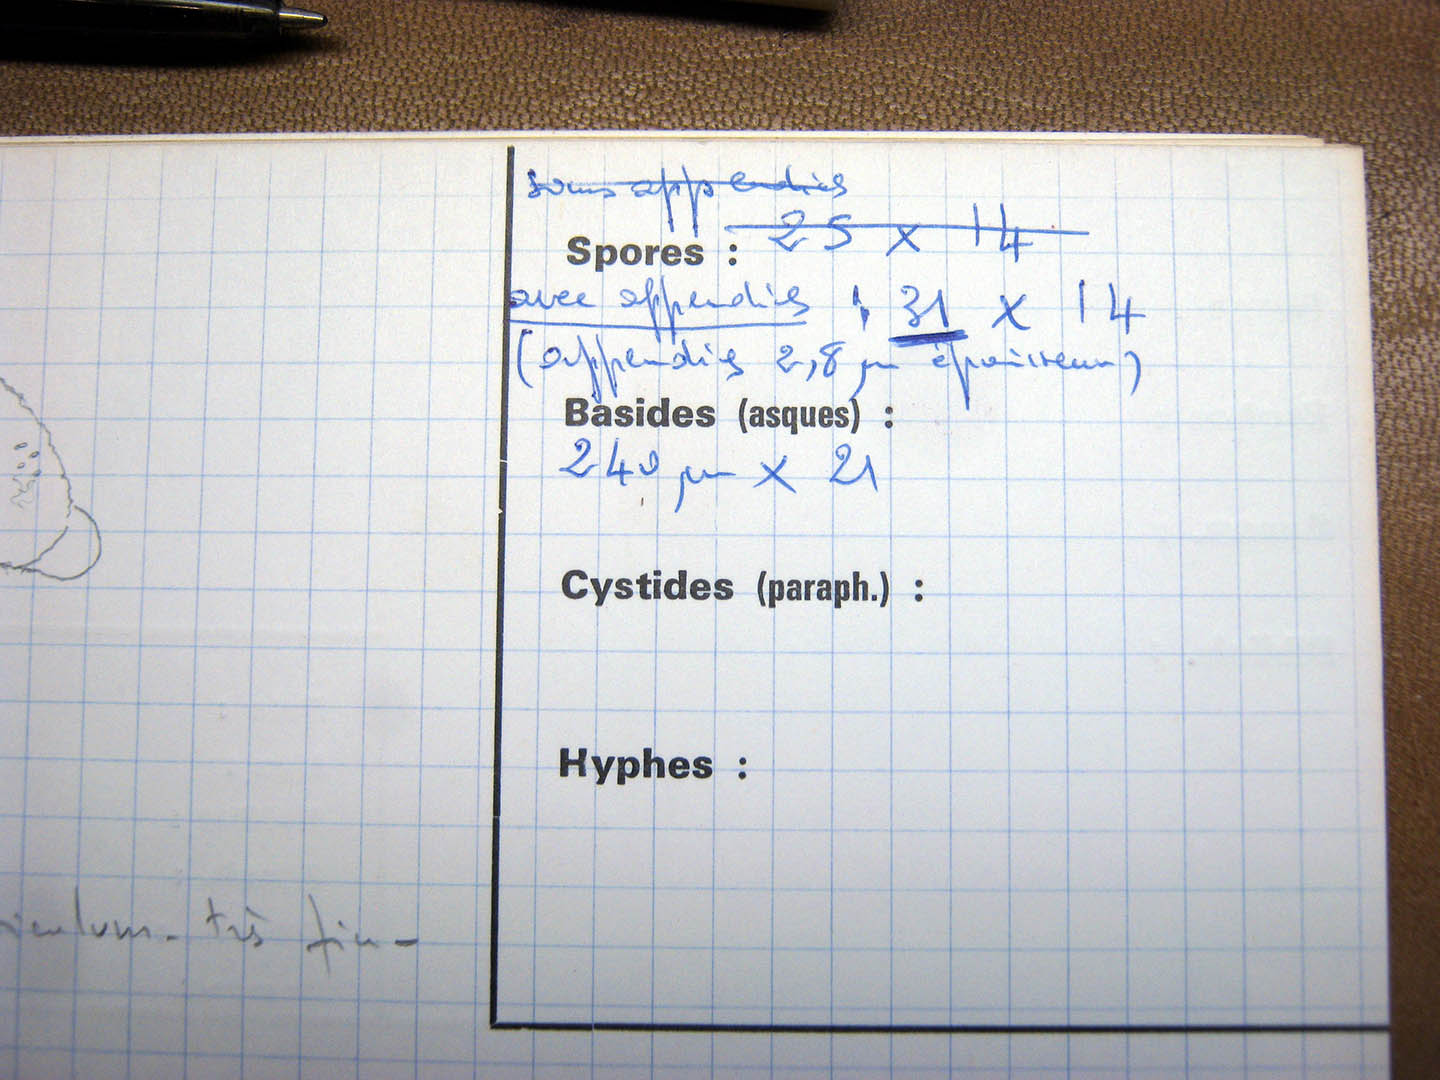 sans appendies
Spores : 25 x 14
avec appendies : 31 x 14
(appendies 2,8 µm épaisseur)
Basides (asques) :
240 µm x 21
Cystides (paraph.) :
Hyphes :
très fin -